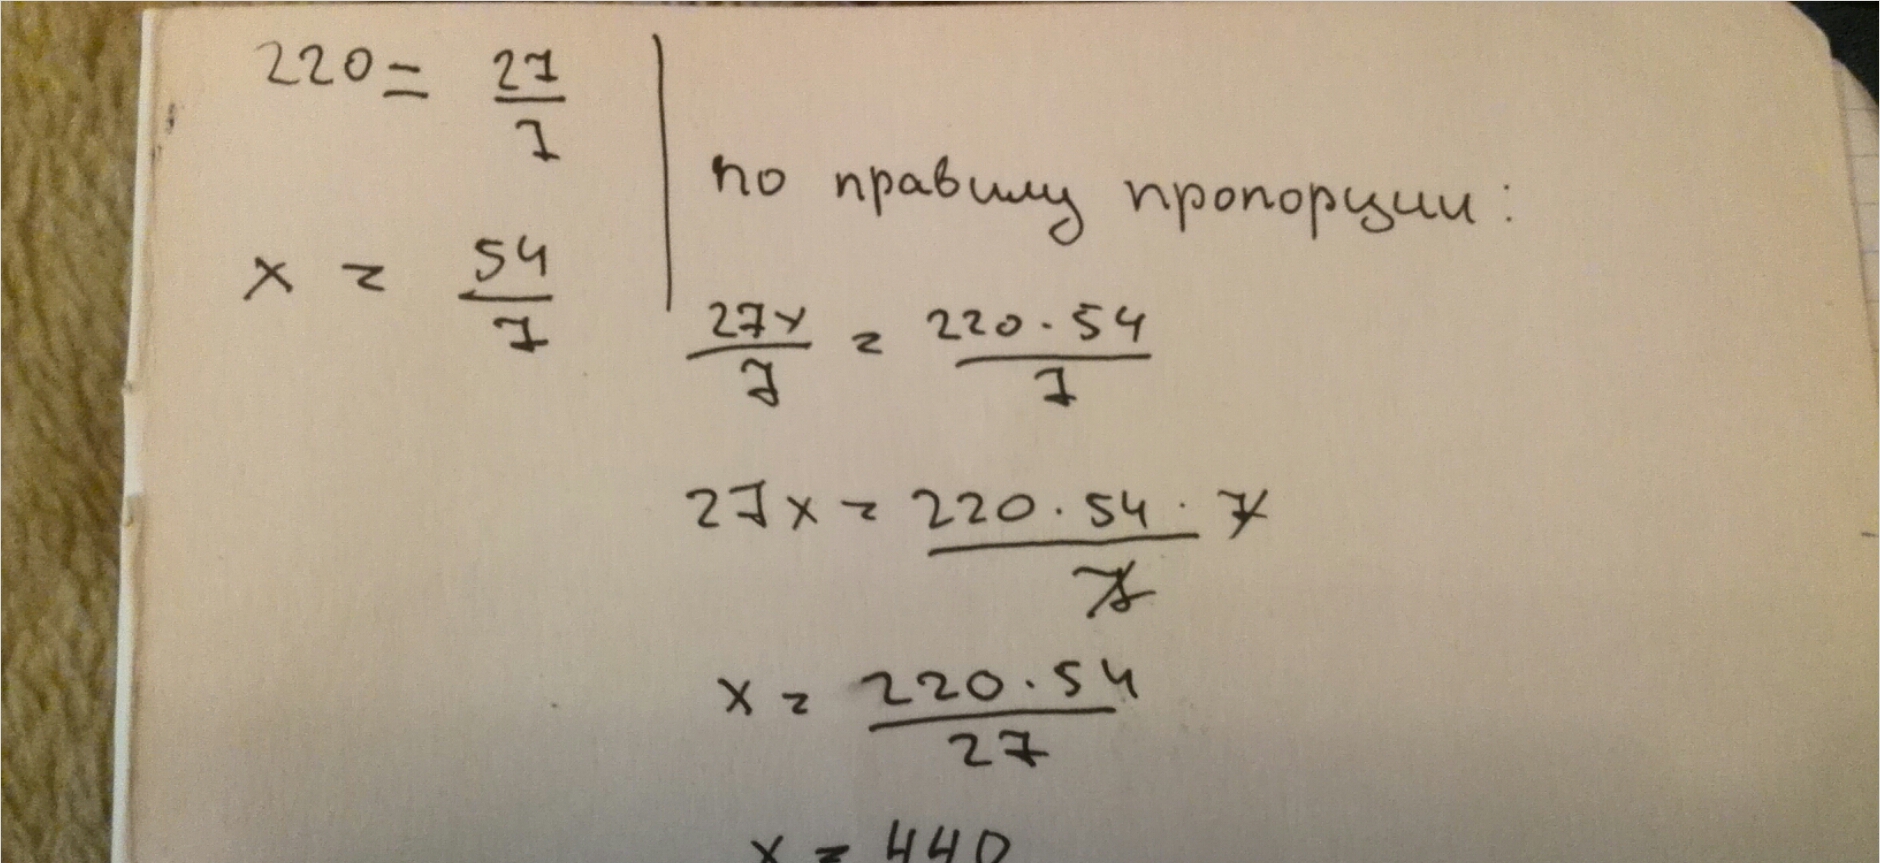 220 = 27/7
x = 54/7
по правилу пропорции:
27x/7 = 220·54/7
27x = 220·54·7/7
x = 220·54/27
x = 440